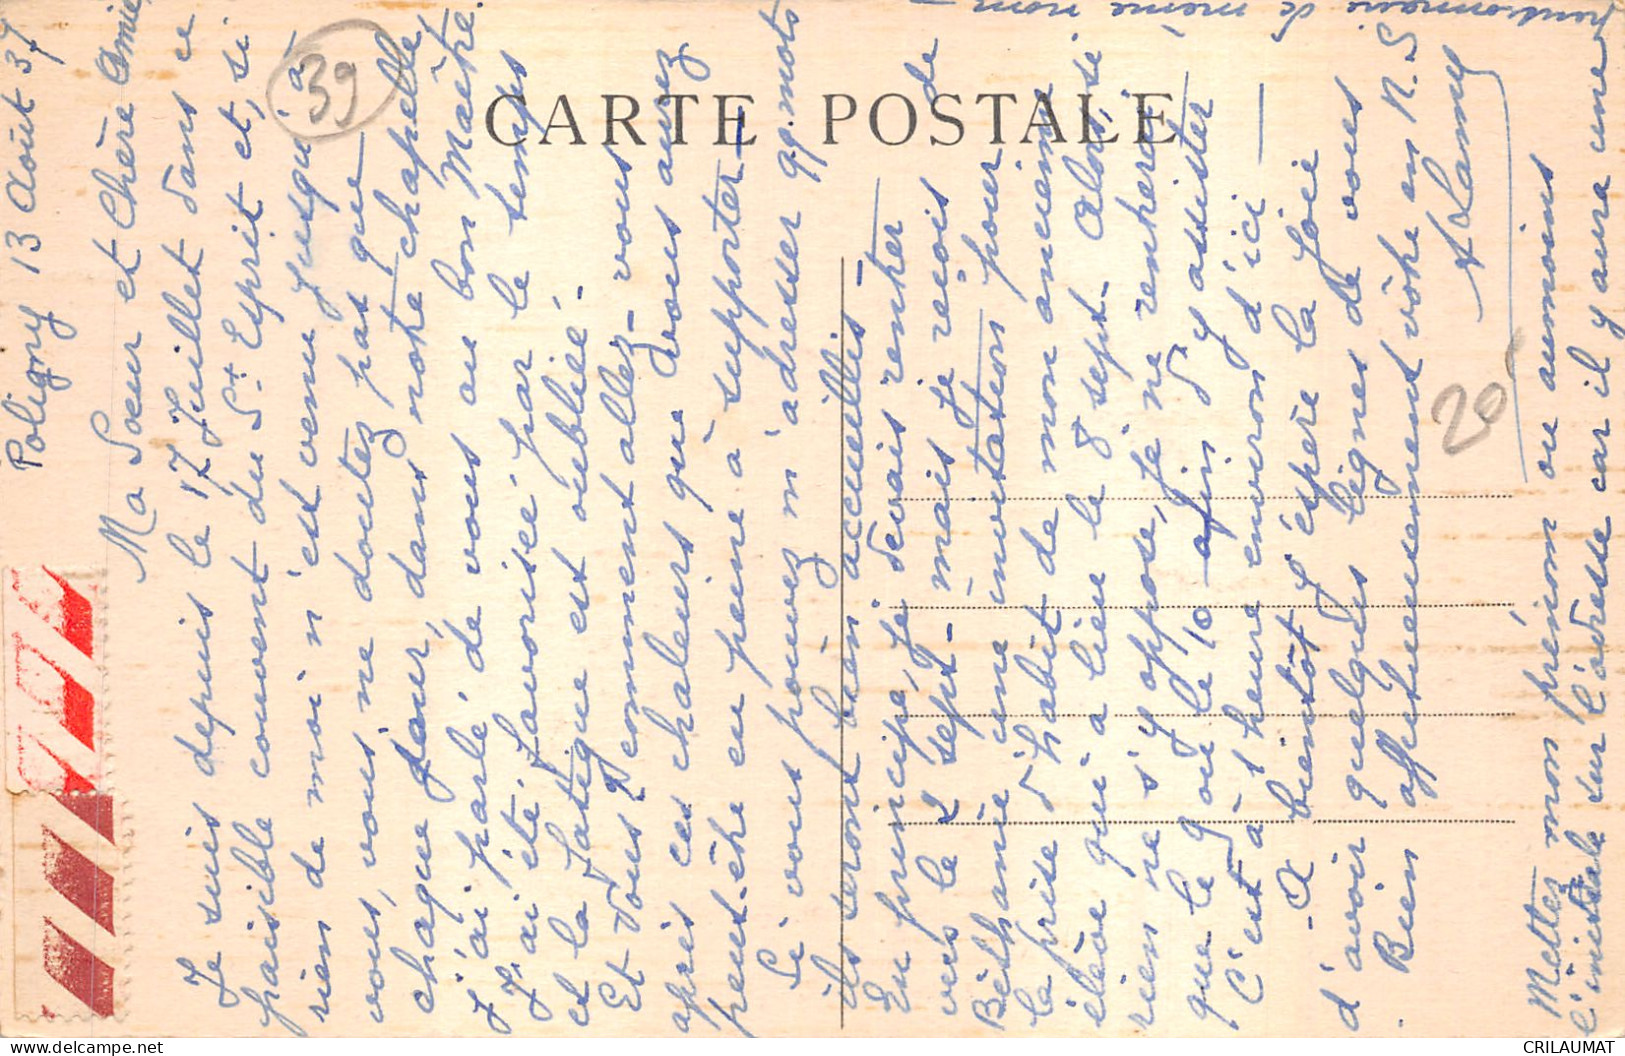 CARTE POSTALE
39
20
Poligny 13 Août 37
Ma Sœur et Chère Amie,
Je suis depuis le 17 Juillet dans ce
paisible couvent du St. Esprit et, si
rien de moi n'est venu jusqu'à
vous, vous ne doutez pas que
chaque jour, dans notre chapelle,
j'ai parlé de vous au bon Maître.
J'ai été favorisée par le temps
et la fatigue est oubliée.
Et Vous comment allez-vous
après ces chaleurs que vous avez
peut-être eu peine à supporter —
Si vous pouvez m'adresser qq. mots
ils seront bien accueillis —
En principe, je devais rentrer
vers le 2 sept — mais je reçois de
Béthanie une invitation pour
la prise d'habit de mon ancienne
élève qui a lieu le 8 sept. Alors, si
rien ne s'y oppose, je ne rentrerai
que le 9 ou le 10 afin d'y assister
C'est à 1 heure environ d'ici —
A bientôt j'espère la joie
d'avoir quelques lignes de vous
Bien affectueusement vôtre en N. S
A Lamy
Mettez mon prénom ou aumoins
l'initiale sur l'adresse car il y aura une
pensionnaire de même nom —
CRILAUMAT